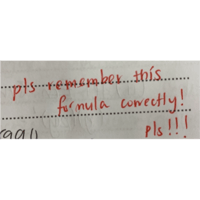 pls remember this
formula correctly!
pls!!!